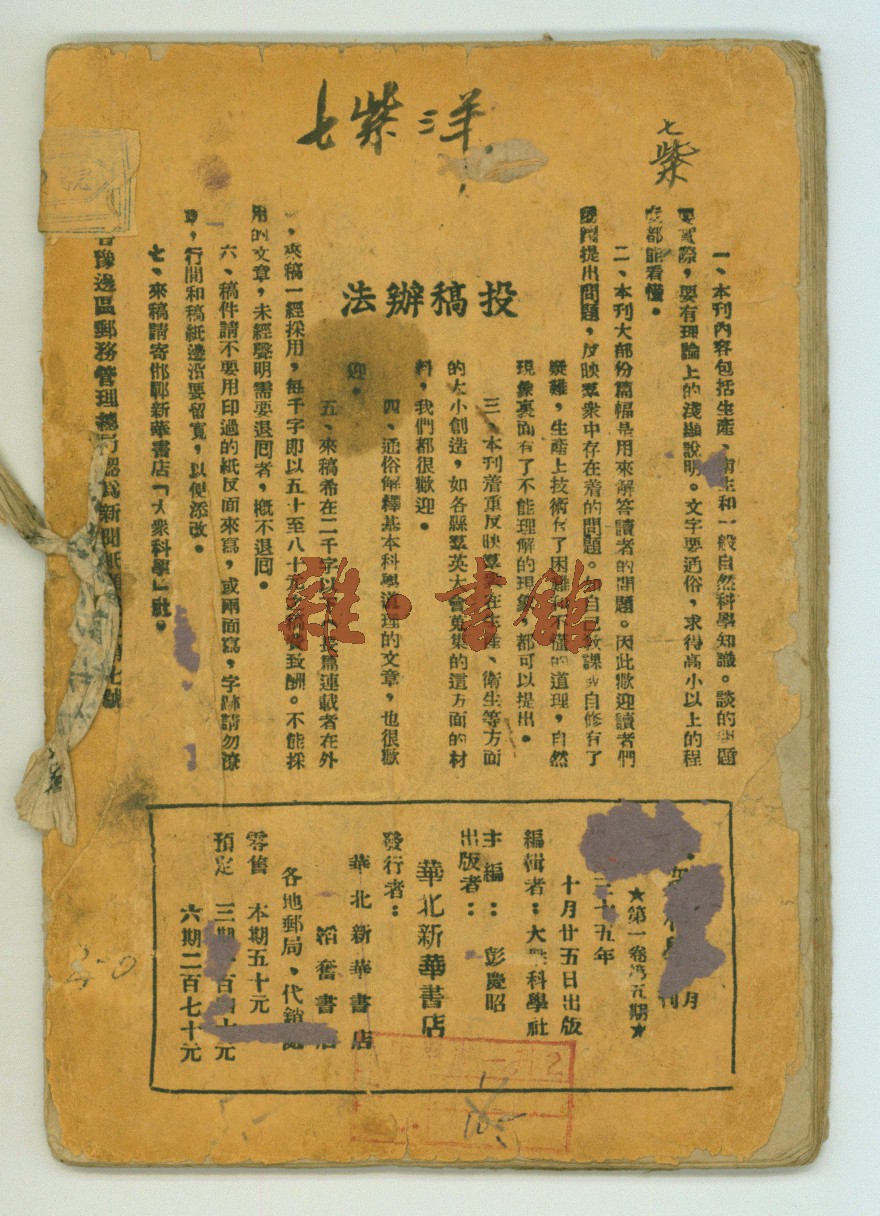 七紫三洋
七紫
投稿辦法
一、本刊內容包括生產、衛生和一般自然科學知識。談的問題
要實際，要有理論上的淺顯說明。文字要通俗，求得高小以上的程
度都能看懂。
二、本刊大部份篇幅是用來解答讀者的問題。因此歡迎讀者們
踴躍提出問題，反映羣衆中存在着的問題。如自己教課或自修有了
疑難，生產上技術有了困難和不懂的道理，自然
現象裏面有了不能理解的現象，都可以提出。
三、本刊着重反映羣衆在生產、衛生等方面
的大小創造，如各縣羣英大會蒐集的這方面的材
料，我們都很歡迎。
四、通俗解釋基本科學道理的文章，也很歡
迎。
五、來稿希在二千字以下，長篇連載者在外
，來稿一經採用，每千字即以五十至八十元之稿費致酬。不能採
用的文章，未經聲明需要退囘者，概不退囘。
六、稿件請不要用印過的紙反面來寫，或兩面寫，字跡請勿潦
草，行間和稿紙邊沿要留寬，以便添改。
七、來稿請寄邯鄲新華書店「大衆科學」社。
豫邊區郵務管理總局認爲新聞紙
七號
科學
月刊
★第一卷第五期★
三十五年
十月廿五日出版
編輯者：大衆科學社
主編：彭慶昭
出版者：
華北新華書店
發行者：
華北新華書店
韜奮書店
各地郵局、代銷處
零售 本期五十元
預定 三期一百四十元
六期二百七十元
雜·書館
105